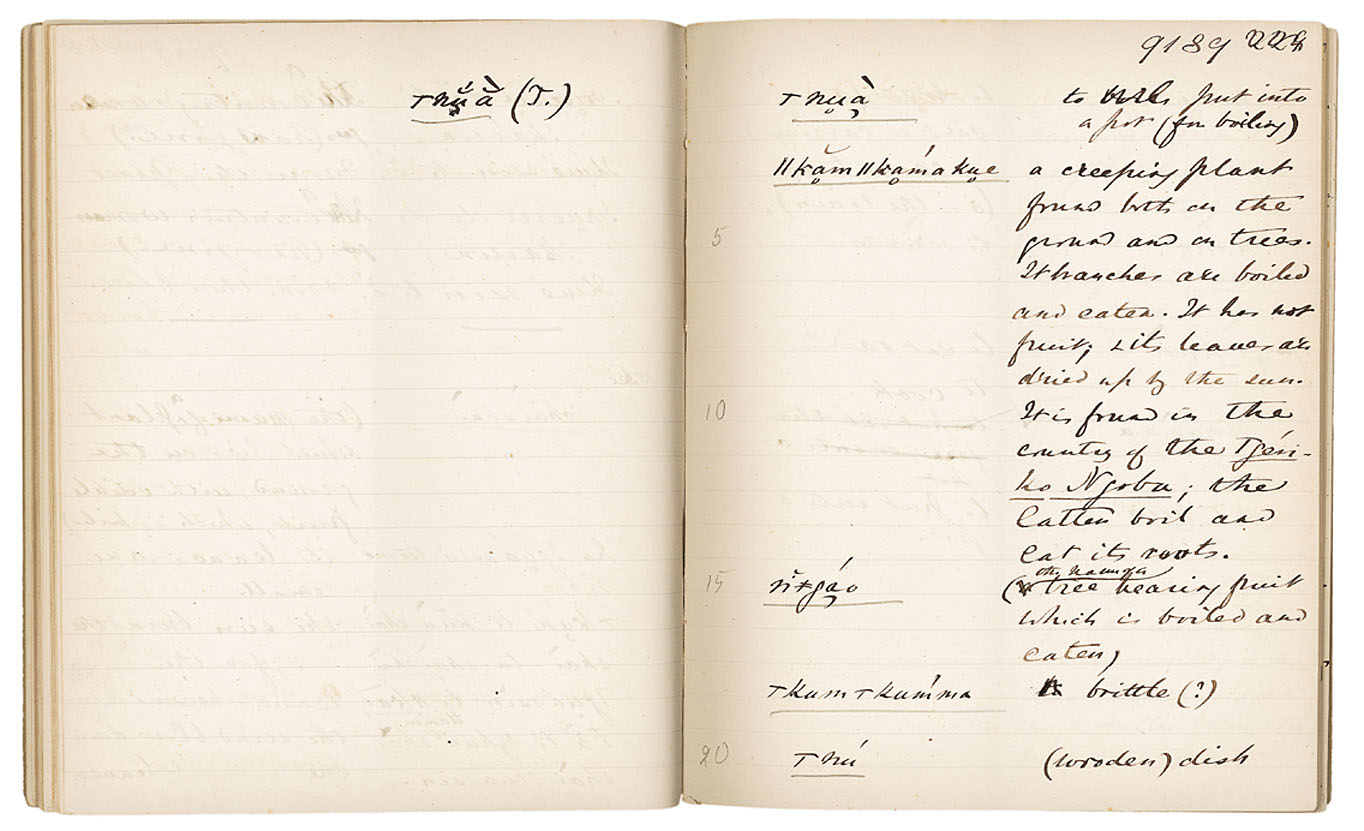 ⲧnŭ̯́ằ (T.)
9189 224
ⲧnu̯à to put into
a pot (for boiling)
ǁkăm ǁkámakue a creeping plant
found both on the
5 ground and on trees.
It branches are boiled
and eaten. It has not
fruit; & its leaves are
dried up by the sun.
10 It is found in the
country of the
ko Ngobu; the
latter boil and
eat its roots.
the
15 (tree bearing fruit
which is boiled and
eaten)
ⲧkum ⲧkuḿma brittle (?)
20 ⲧnú (wooden) dish